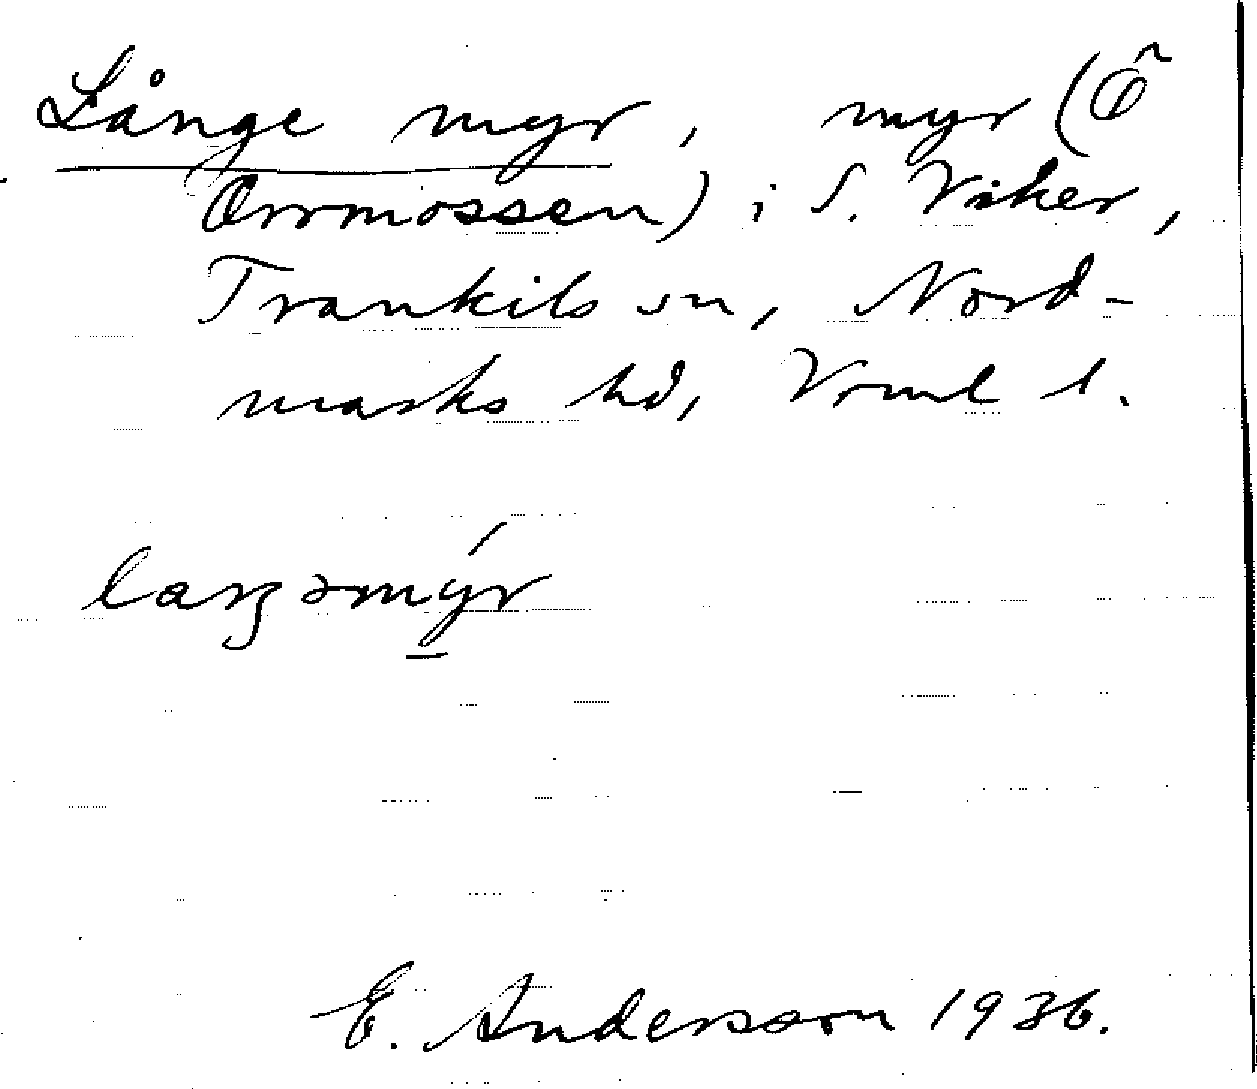 Långe myr, myr (Ö
Orrmossen) i S. Viker,
Trankils sn, Nord-
marks hd, Vrml l.
laŋəmýr
E. Andersson 1936.